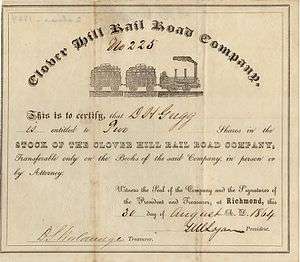 Clover Hill Rail Road Company,
No 225
This is to certify, that D. H. Gregg
is entitled to Five Shares in the
STOCK OF THE CLOVER HILL RAIL ROAD COMPANY,
Transferable only on the Books of the said Company, in person or
by Attorney.
Witness the Seal of the Company and the Signatures
of the President and Treasurer, at Richmond, this
30 day of August A. D. 1864
President.
Treasurer.